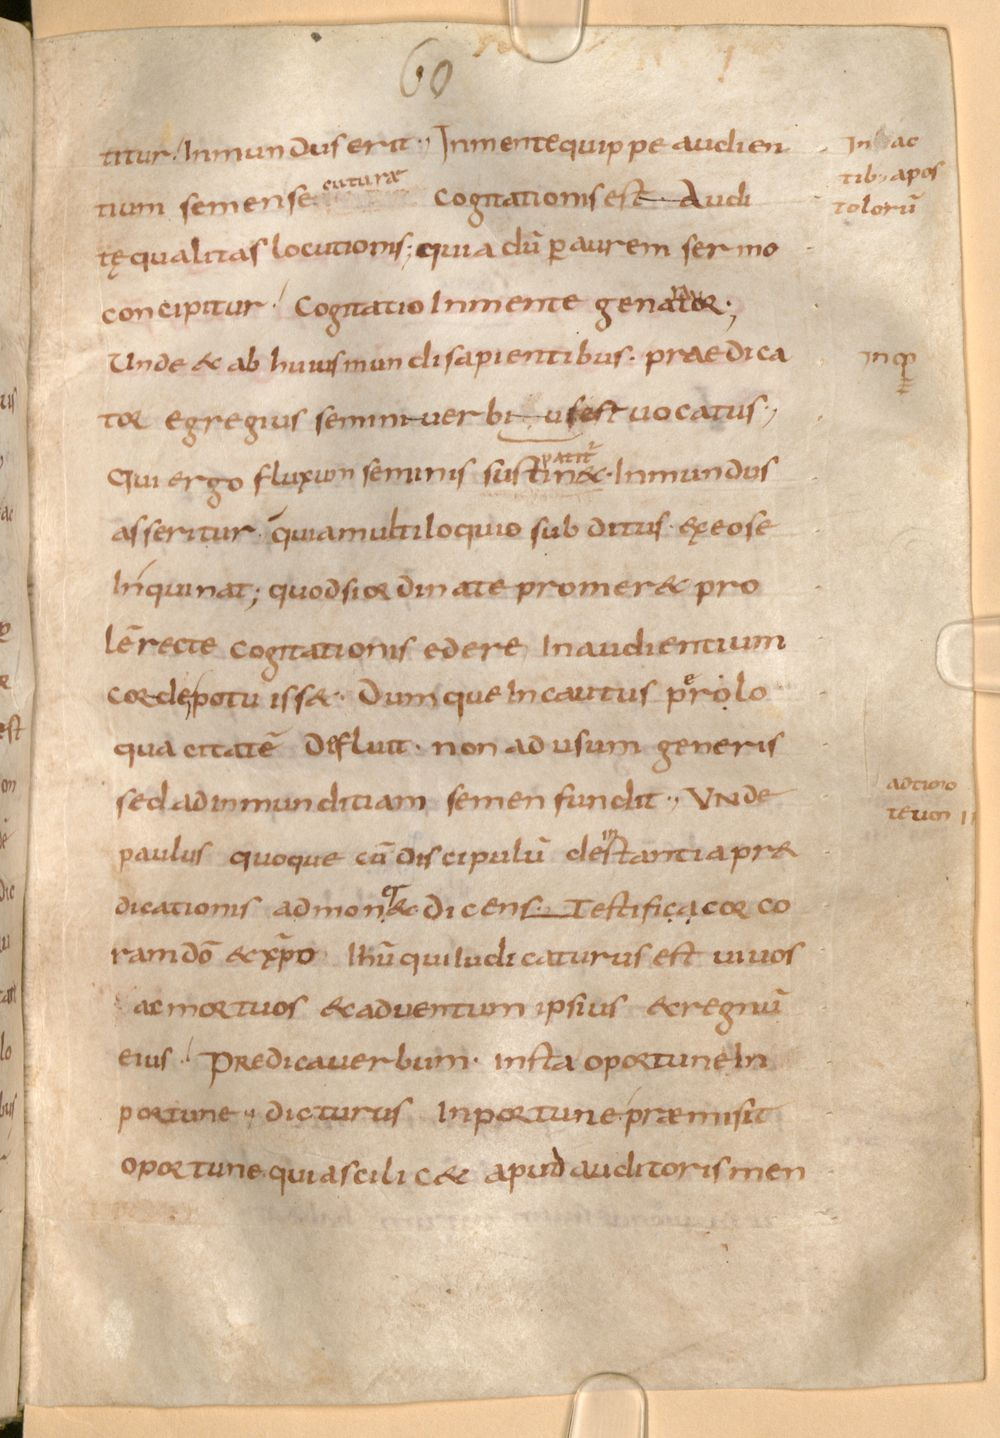 60
titur. Inmundus erit., Inmente quippe audien
tium semen se cuturae cogitationis est Audi
tę qualitas locutionis; quia dū ꝑ aurem sermo
concipitur. Cogitatio Inmente genator;
Unde & ab huius mundi sapientibus. praedica
tor egregius semini verbi us est uocatus.,
Qui ergo fluxum seminis sustin&. Inmundus
patit̄
asseritur quia multiloquio subditus. ex eo se
Inquinat; quod si ordinate promer& pro
lē recte cogitationis edere In audientium
corde potuiss&. Dumque Incautus per lo
quacitatē Defluit. non ad usum generis
sed ad inmunditiam semen fundit., Unde
paulus quoque cū Discipulū de instantia præ
dicationis admoner& dicens. Testificacor co
ram dō & xp̄o Ihū qui Iudicaturus est uiuos
ac mortuos & aduentum ipsius & regnū
eius. Predica uerbum. insta oportune In
portune., dicturus Inportune præmisit
oportune. quia scilic& apud auditoris men
In ac
tib; apos
tolorū
adtimo
teum II